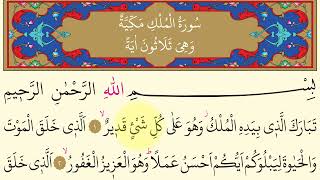 سُورَةُ الْمُلْكِ مَكِّيَّةٌ
وَهِىَ ثَلَاثُونَ اٰيَةً
بِسْمِ اللّٰهِ الرَّحْمٰنِ الرَّحٖيمِ
تَبَارَكَ الَّذٖى بِيَدِهِ الْمُلْكُ وَهُوَ عَلٰى كُلِّ شَىْءٍ قَدٖيرٌۙ ١ اَلَّذٖى خَلَقَ الْمَوْتَ
وَالْحَيٰوةَ لِيَبْلُوَكُمْ اَيُّكُمْ اَحْسَنُ عَمَلًاؕ وَهُوَ الْعَزٖيزُ الْغَفُورُۙ ٢ اَلَّذٖى خَلَقَ